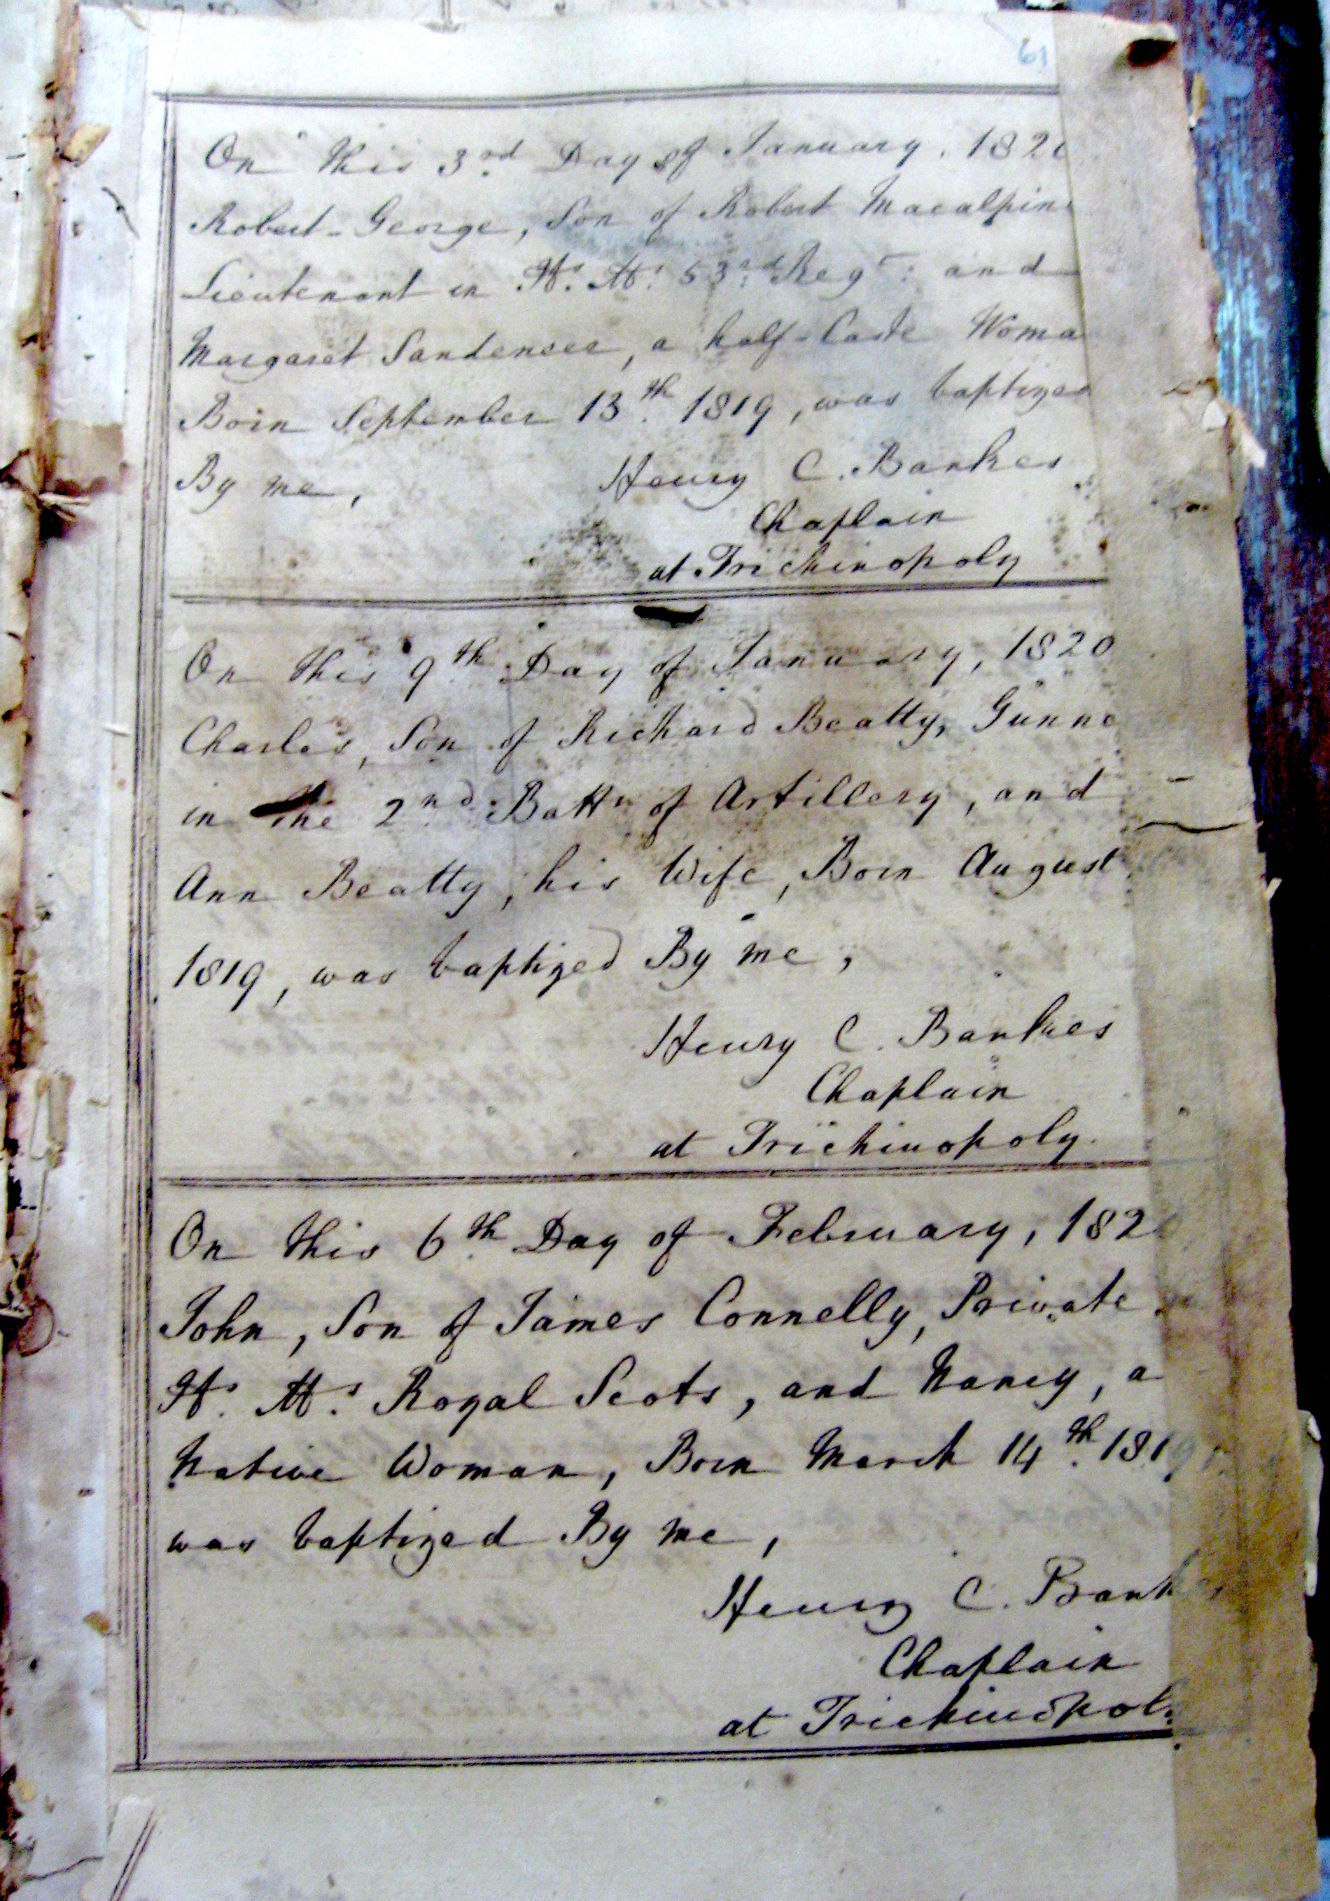 61
On this 3rd Day of January. 182
Robert-George, Son of Robert Macalpin
Lieutenant in H. Ms. 53rd Regt: and
Margaret Sandenser, a half-Caste Woma
Born September 13th. 1819, was baptized
By me,
Henry C. Bankes
Chaplain
at Trichinopoly
On this 9th Day of January, 1820
Charles, Son of Richard Beatty, Gunne
in the 2nd. Battn of Artillery, and
Ann Beatty, his Wife, Born August
1819, was baptized By me,
Henry C. Bankes
Chaplain
at Trichinopoly.
On this 6th. Day of February, 182
John, Son of James Connelly, Private
Hs. Ms. Royal Scots, and Nancy, a
Native Woman, Born March 14th. 1819
was baptized By me,
Henry C. Bank
Chaplain
at Trichinopol